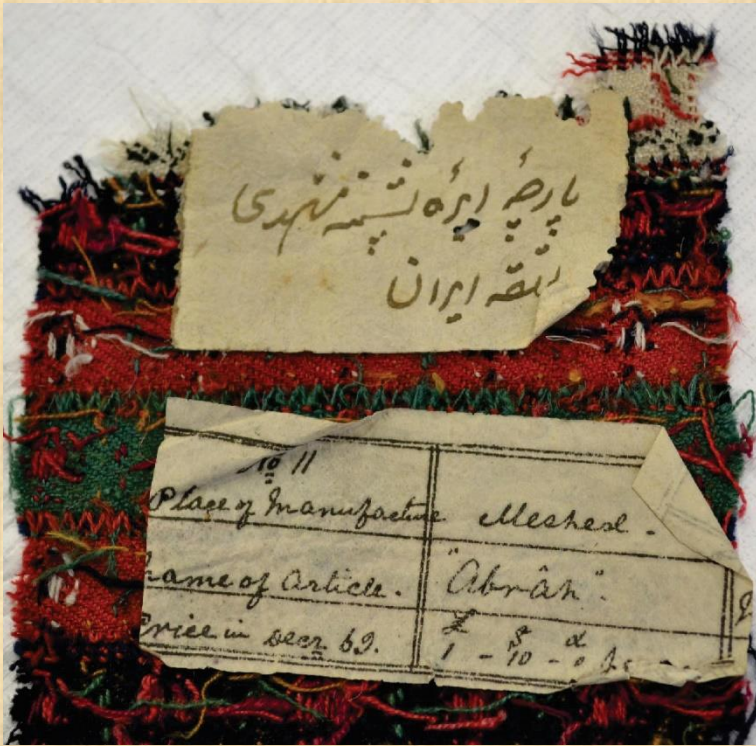 پارچۀ ابرۀ پشمینه مشهدی
ایران
No 11
Place of Manufacture Meshed.
Name of Article. "Abrâh".
Price in Decr 69. £ 1 - s 10 - d 0